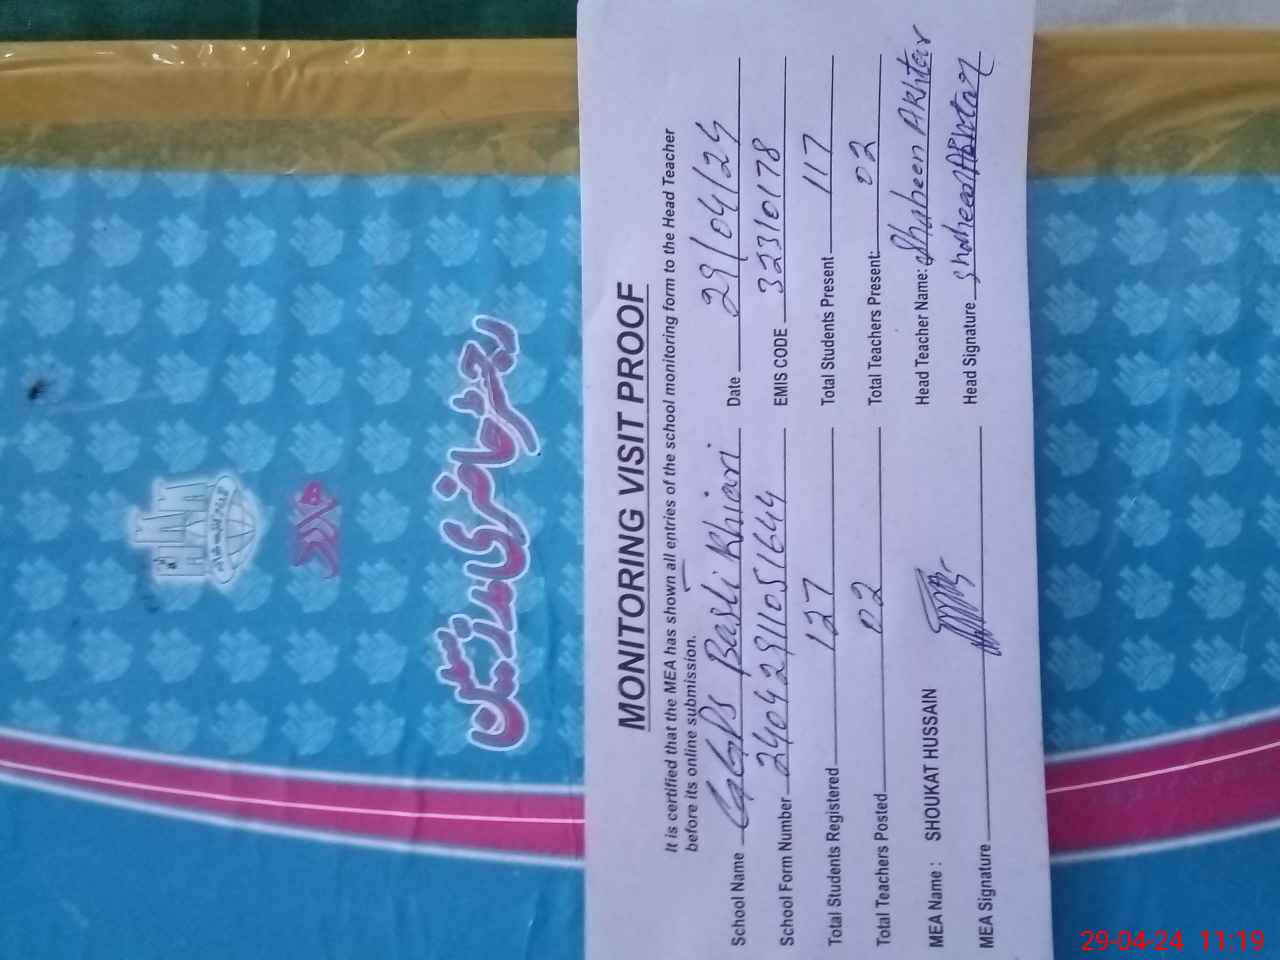 MONITORING VISIT PROOF
It is certified that the MEA has shown all entries of the school monitoring form to the Head Teacher
before its online submission.
School Name GGPS Basti Khiari Date 29/04/24
School Form Number 24042911051644 EMIS CODE 32310178
Total Students Registered 127 Total Students Present 117
Total Teachers Posted 02 Total Teachers Present: 02
MEA Name : SHOUKAT HUSSAIN Head Teacher Name: Shaheen Akhtar
MEA Signature Head Signature Shaheen Akhtar
رجسٹر حاضری مدرسین
29-04-24 11:19